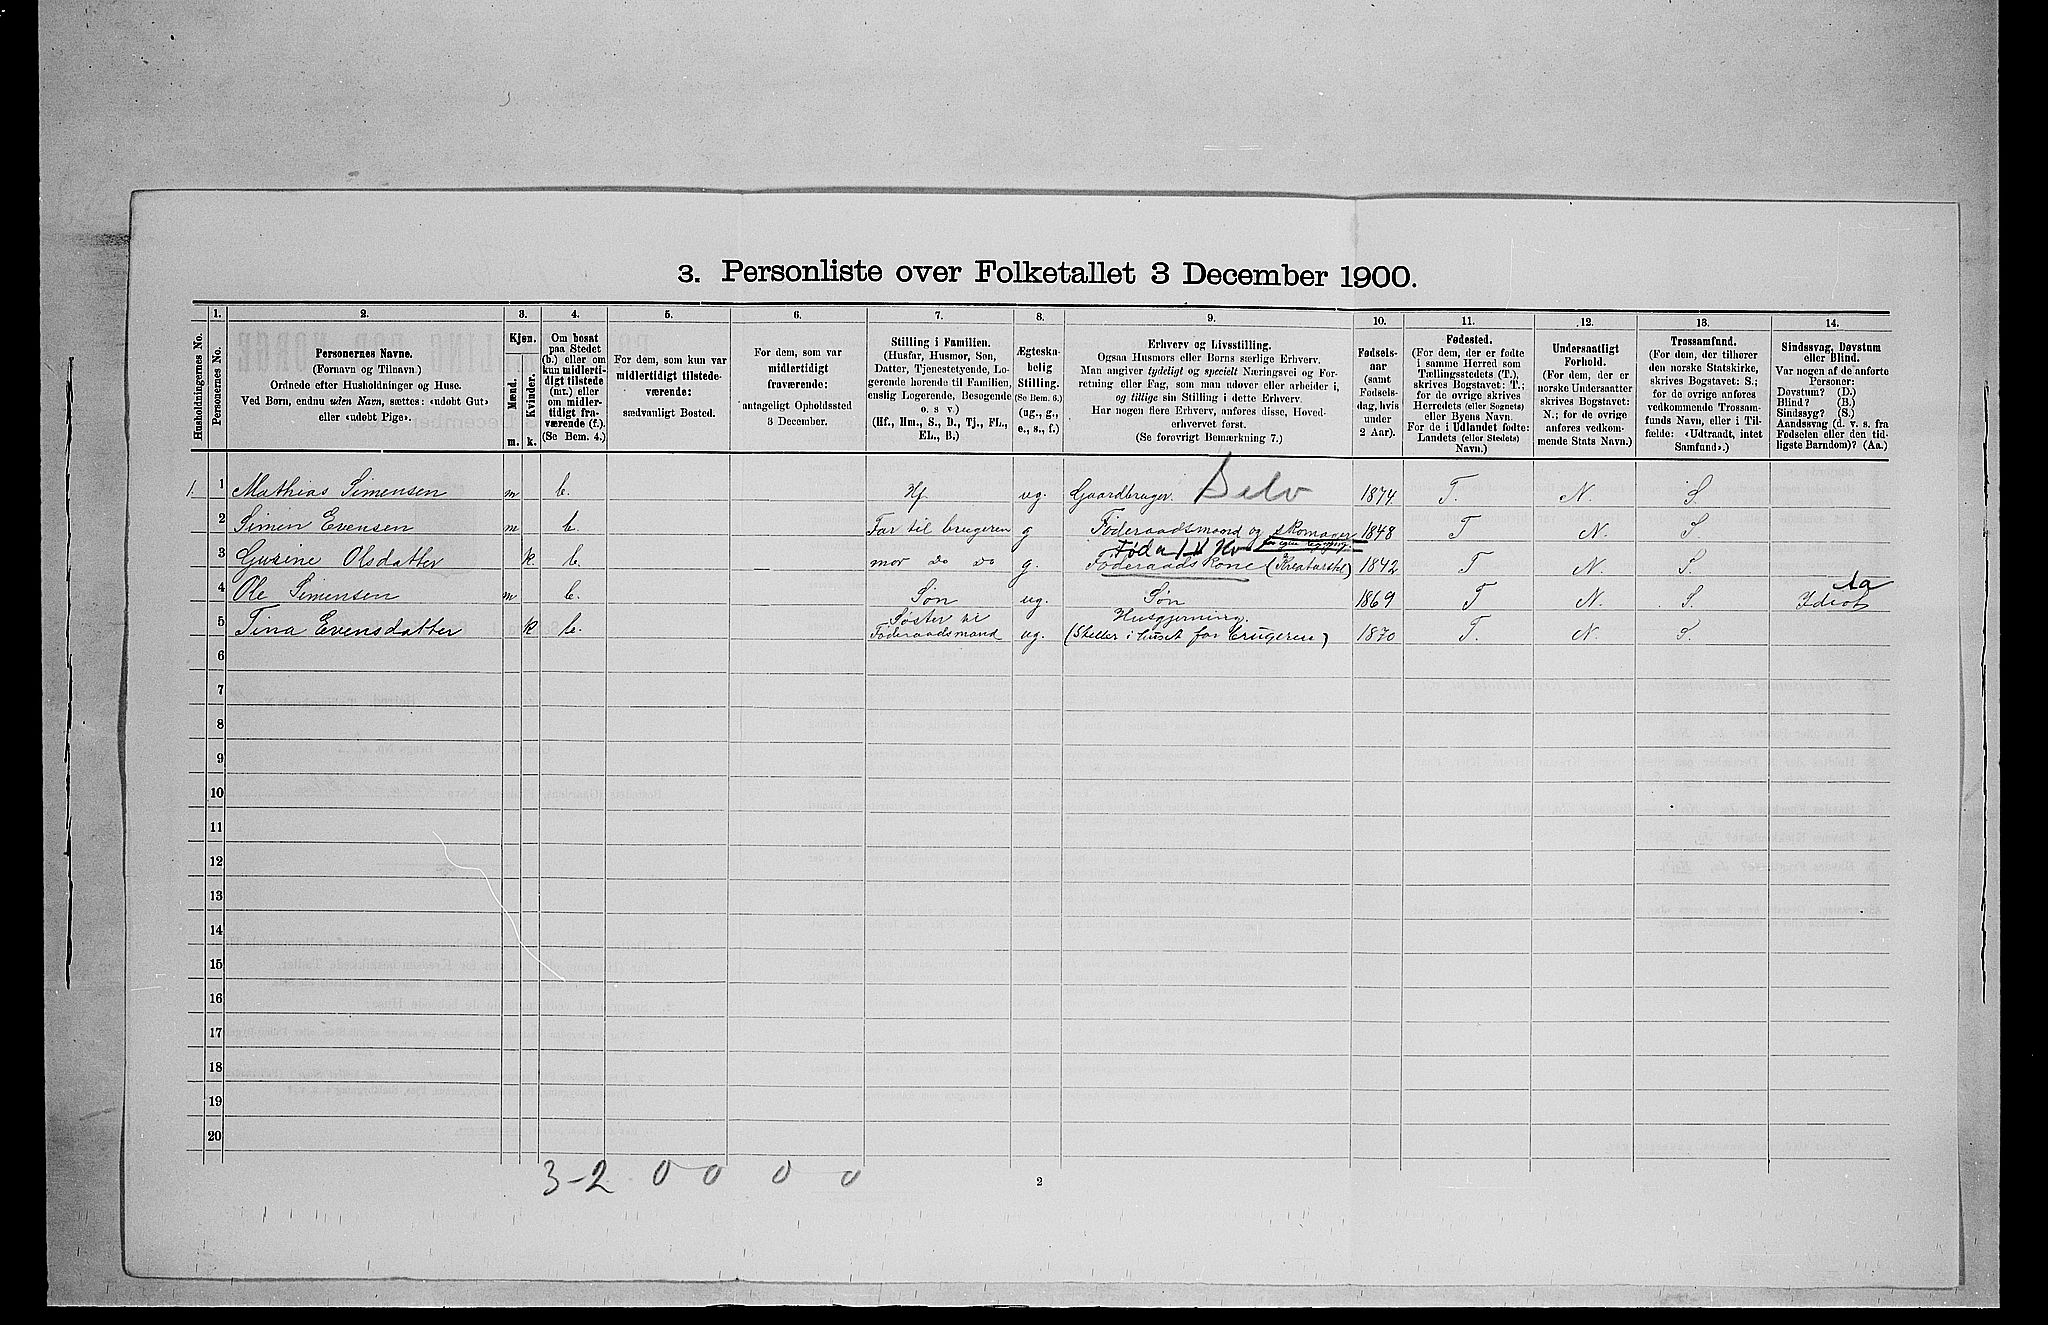 3. Personliste over Folketallet 3 December 1900.
Husholdningernes No.
1. Personernes No.
2. Personernes Navne.
(Fornavn og Tilnavn.)
Ordnede efter Husholdninger og Huse.
Ved Børn, endnu uden Navn, sættes: «udøbt Gut»
eller «udøbt Pige».
3. Kjøn.
Mænd. m.
Kvinder. k.
4. Om bosat
paa Stedet
(b.) eller om
kun midlerti-
digt tilstede
(mt.) eller
om midler-
tidigt fra-
værende (f.).
(Se Bem. 4.)
5. For dem, som kun var
midlertidigt tilstede-
værende:
sædvanligt Bosted.
6. For dem, som var
midlertidigt
fraværende:
antageligt Opholdssted
3 December.
7. Stilling i Familien.
(Husfar, Husmor, Søn,
Datter, Tjenestetyende, Lo-
gerende hørende til Familien,
enslig Logerende, Besøgende
o. s. v.)
(Hf., Hm., S., D., Tj., FL.,
EL., B.)
8. Ægteska-
belig
Stilling.
(Se Bem. 6.)
(ug., g.,
e., s., f.)
9. Erhverv og Livsstilling.
Ogsaa Husmors eller Børns særlige Erhverv.
Man angiver tydeligt og specielt Næringsvei og For-
retning eller Fag, som man udøver eller arbeider i,
og tillige sin Stilling i dette Erhverv.
Har nogen flere Erhverv, anføres disse, Hoved-
erhvervet først.
(Se forøvrigt Bemærkning 7.)
10. Fødsels-
aar
(samt
Fødsels-
dag, hvis
under
2 Aar).
11. Fødested.
(For dem, der er fødte
i samme Herred som
Tællingsstedets (T.),
skrives Bogstavet: T.;
for de øvrige skrives
Herredets (eller Sognets)
eller Byens Navn.
For de i Udlandet fødte:
Landets (eller Stedets)
Navn.)
12. Undersaatligt
Forhold.
(For dem, der er
norske Undersaatter
skrives Bogstavet:
N.; for de øvrige
anføres vedkom-
mende Stats Navn.)
13. Trossamfund.
(For dem, der tilhører
den norske Statskirke,
skrives Bogstavet: S.;
for de øvrige anføres
vedkommende Trossam-
funds Navn, eller i Til-
fælde: «Udtraadt, intet
Samfund».)
14. Sindssvag, Døvstum
eller Blind.
Var nogen af de anførte
Personer:
Døvstum? (D.)
Blind? (B.)
Sindssyg? (S.)
Aandssvag (d. v. s. fra
Fødselen eller den tid-
ligste Barndom)? (Aa.)
1. 1 Mathias Simensen m b. Hf ug. Gaardbruger. Selv 1874 T. N. S
2 Simen Evensen m b. Far til brugeren g Føderaadsmand og skomager 1848 T N. S.
3 Gurine Olsdatter k. b. mor Do Do g. Føderaadskone (Kreaturstel) 1842 T N. S.
4 Ole Simensen m b. Søn ug. Søn 1869 T N. S. Idiot Aa
5 Tina Evensdatter k b. Søster til
Føderaadsmand ug. Husgjerning.
(Steller i huset for brugeren) 1870 T. N. S.
6
7
8
9
10
11
12
13
14
15
16
17
18
19
20
3-2 0 0 0 0
2